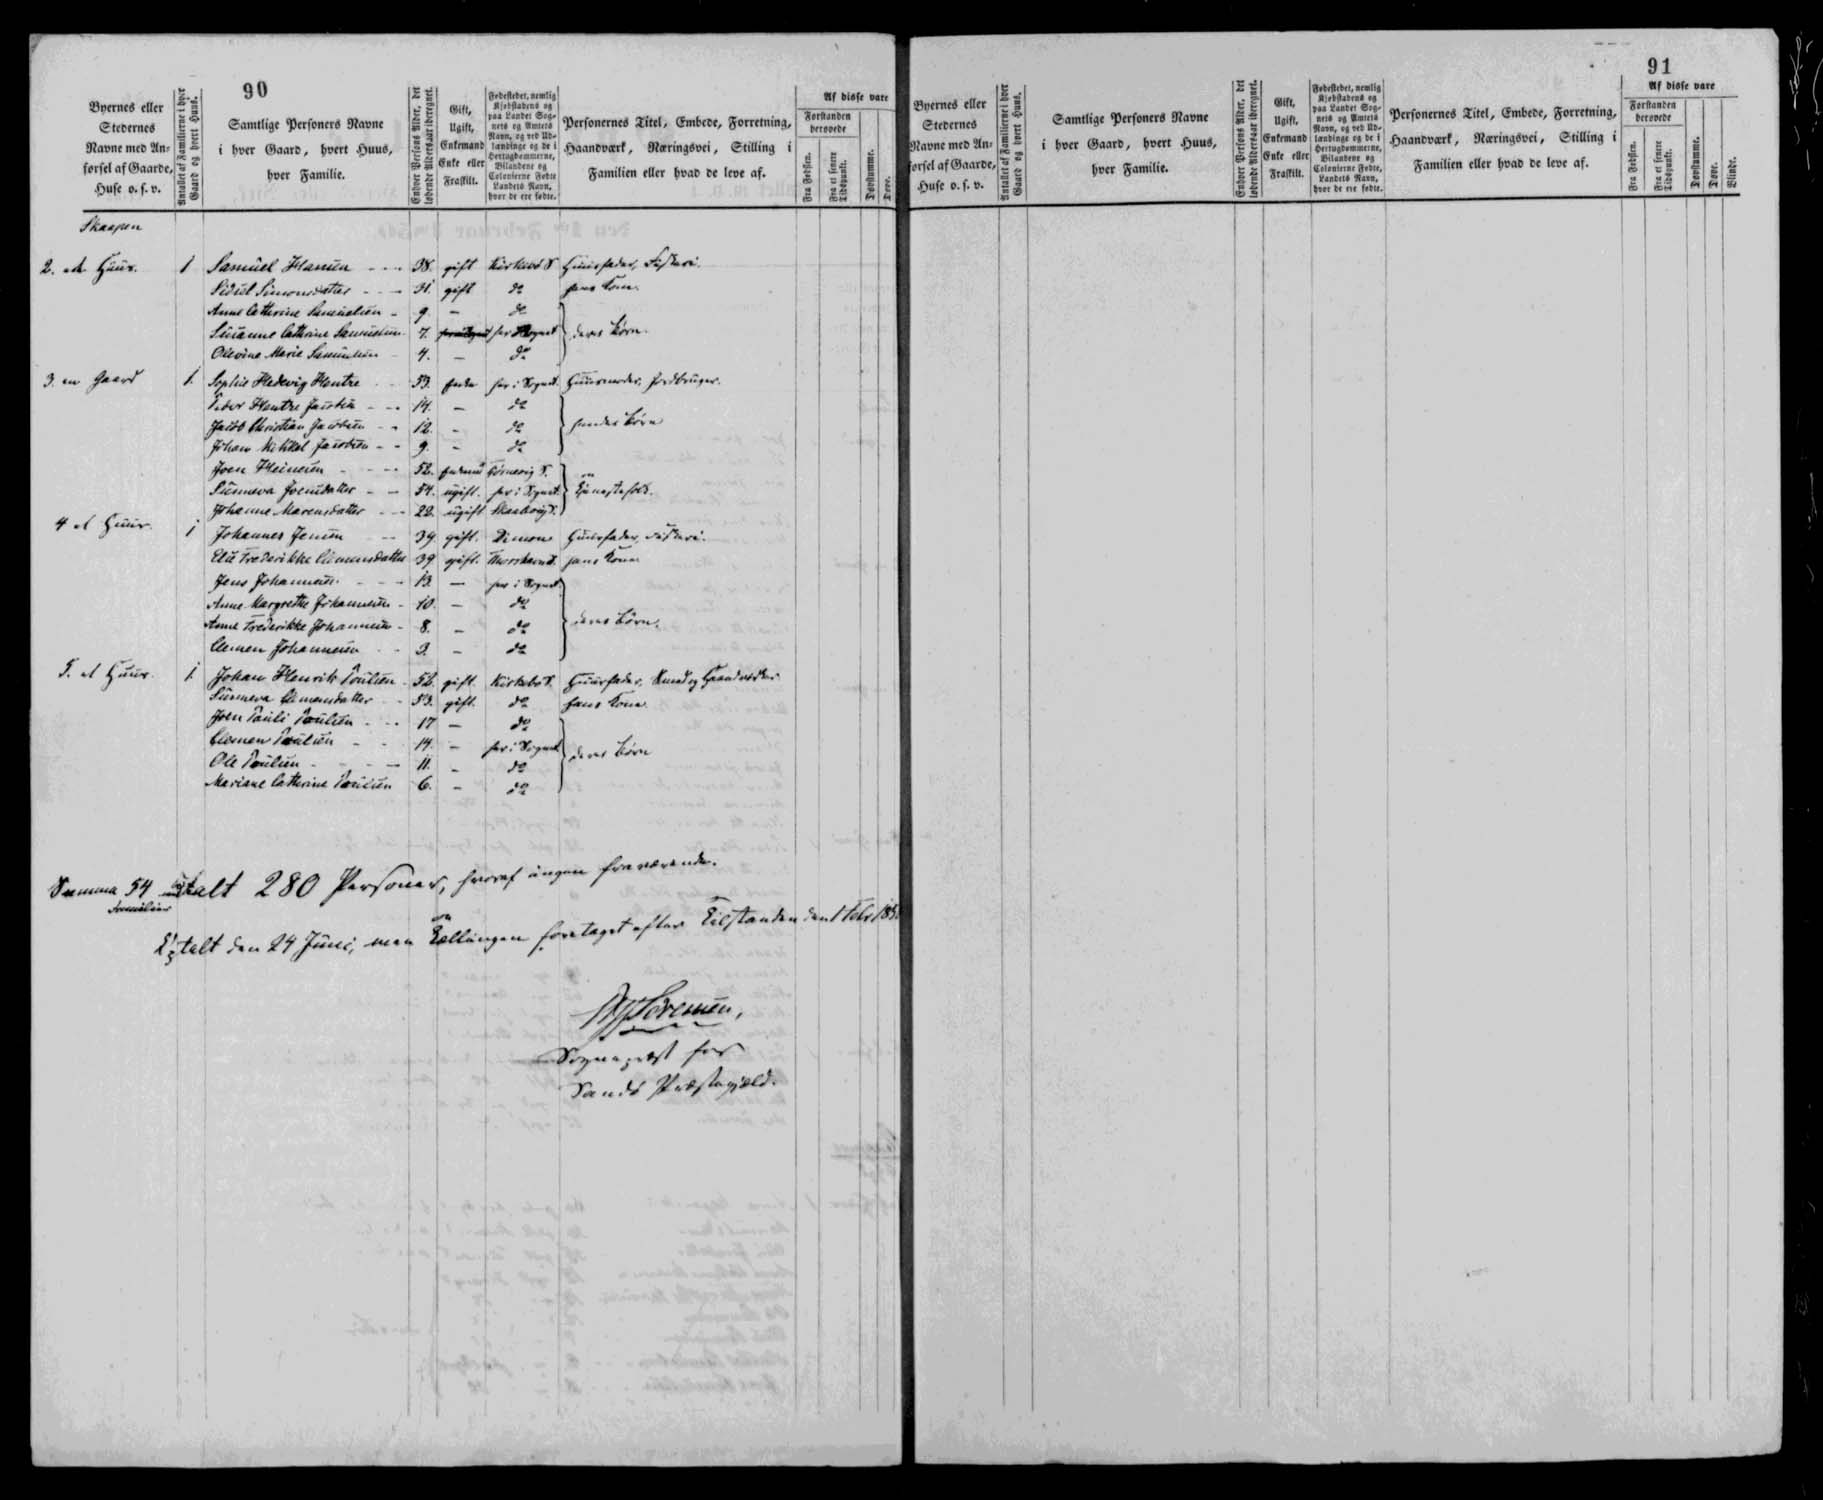 90
Byernes eller Stedernes Navne med Anførsel af Gaarde, Huse o. s. v.
Antallet af Familierne i hver Gaard og hvert Huus.
Samtlige Personers Navne i hver Gaard, hvert Huus, hver Familie.
Enhver Persons Alder, det løbende Aldersaar iberegnet.
Gift, Ugift, Enkemand Enke eller Fraskilt.
Fødestedet, nemlig Kjøbstadens og paa Landet Sognets og Amtets Navn, og ved Udlændinge og de i Hertugdømmerne, Bilandene og Colonierne Fødte Landets Navn, hvor de ere fødte.
Personernes Titel, Embede, Forretning, Haandværk, Næringsvei, Stilling i Familien eller hvad de leve af.
Af disse vare
Forstanden berovede
Fra Fødselen.
Fra et senere Tidspunkt.
Døvstumme.
Døve.
Skaapen
2. et Huus. 1 Samuel Hansen 38. gift Kirkebø S. Huusfader, Fiskeri.
Sidsel Simonsdatter 31. gift do hans Kone.
Anne Cathrine Samuelsen 9. - do
Susanne Cathrine Samuelsen 7. her i Sognet deres Børn.
Olevine Marie Samuelsen 4. - do
3. en Gaard 1. Sophie Hedevig Hentze 53. Enke her i Sognet. Huusmoder, Jordbruger.
Peder Hentze Jacobsen 14. - do
Jacob Christian Jacobsen 12. - do hendes Børn
Johan Michael Jacobsen 9. - do
Joen Heinesen 52. Enkemd
Sunneva Joensdatter 54. ugift. her i Sognet. Tjenestefolk.
Johanne Marensdatter 22. ugift
4 et Huus. 1 Johannes Jensen 39 gift. Dimon Huusfader, Fiskeri.
Else Frederikke Clemensdatter 39 gift. Thorshavn hans Kone.
Jens Johannesen 13. - her i Sognet.
Anne Margrethe Johannesen 10. - do
Anne Frederikke Johannesen 8. - do deres Børn.
Clemen Johannesen 3. - do
5. et Huus. 1. Johan Henrik Poulsen 52. gift. Kirkebø S. Huusfader, Smed og Haandværker
Sunneva Clemensdatter 53. gift. do hans Kone
Joen Pauli Poulsen 17 - do
Clemen Poulsen 14. - her i Sognet deres Børn
Ole Poulsen 11. - do
Mariane Cathrine Poulsen 6. - do
Summa 54 Familier talt 280 Personer, hvoraf ingen fraværende.
Optalt den 24 Juni, men Tællingen foretaget efter Tilstanden den 1 Febr
Sørensen,
Sognepræst for
Sandø Præstegjæld.
91
Byernes eller Stedernes Navne med Anførsel af Gaarde, Huse o. s. v.
Antallet af Familierne i hver Gaard og hvert Huus.
Samtlige Personers Navne i hver Gaard, hvert Huus, hver Familie.
Enhver Persons Alder, det løbende Aldersaar iberegnet.
Gift, Ugift, Enkemand Enke eller Fraskilt.
Fødestedet, nemlig Kjøbstadens og paa Landet Sognets og Amtets Navn, og ved Udlændinge og de i Hertugdømmerne, Bilandene og Colonierne Fødte, Landets Navn, hvor de ere fødte.
Personernes Titel, Embede, Forretning, Haandværk, Næringsvei, Stilling i Familien eller hvad de leve af.
Af disse vare
Forstanden berovede
Fra Fødselen.
Fra et senere Tidspunkt.
Døvstumme.
Døve.
Blinde.